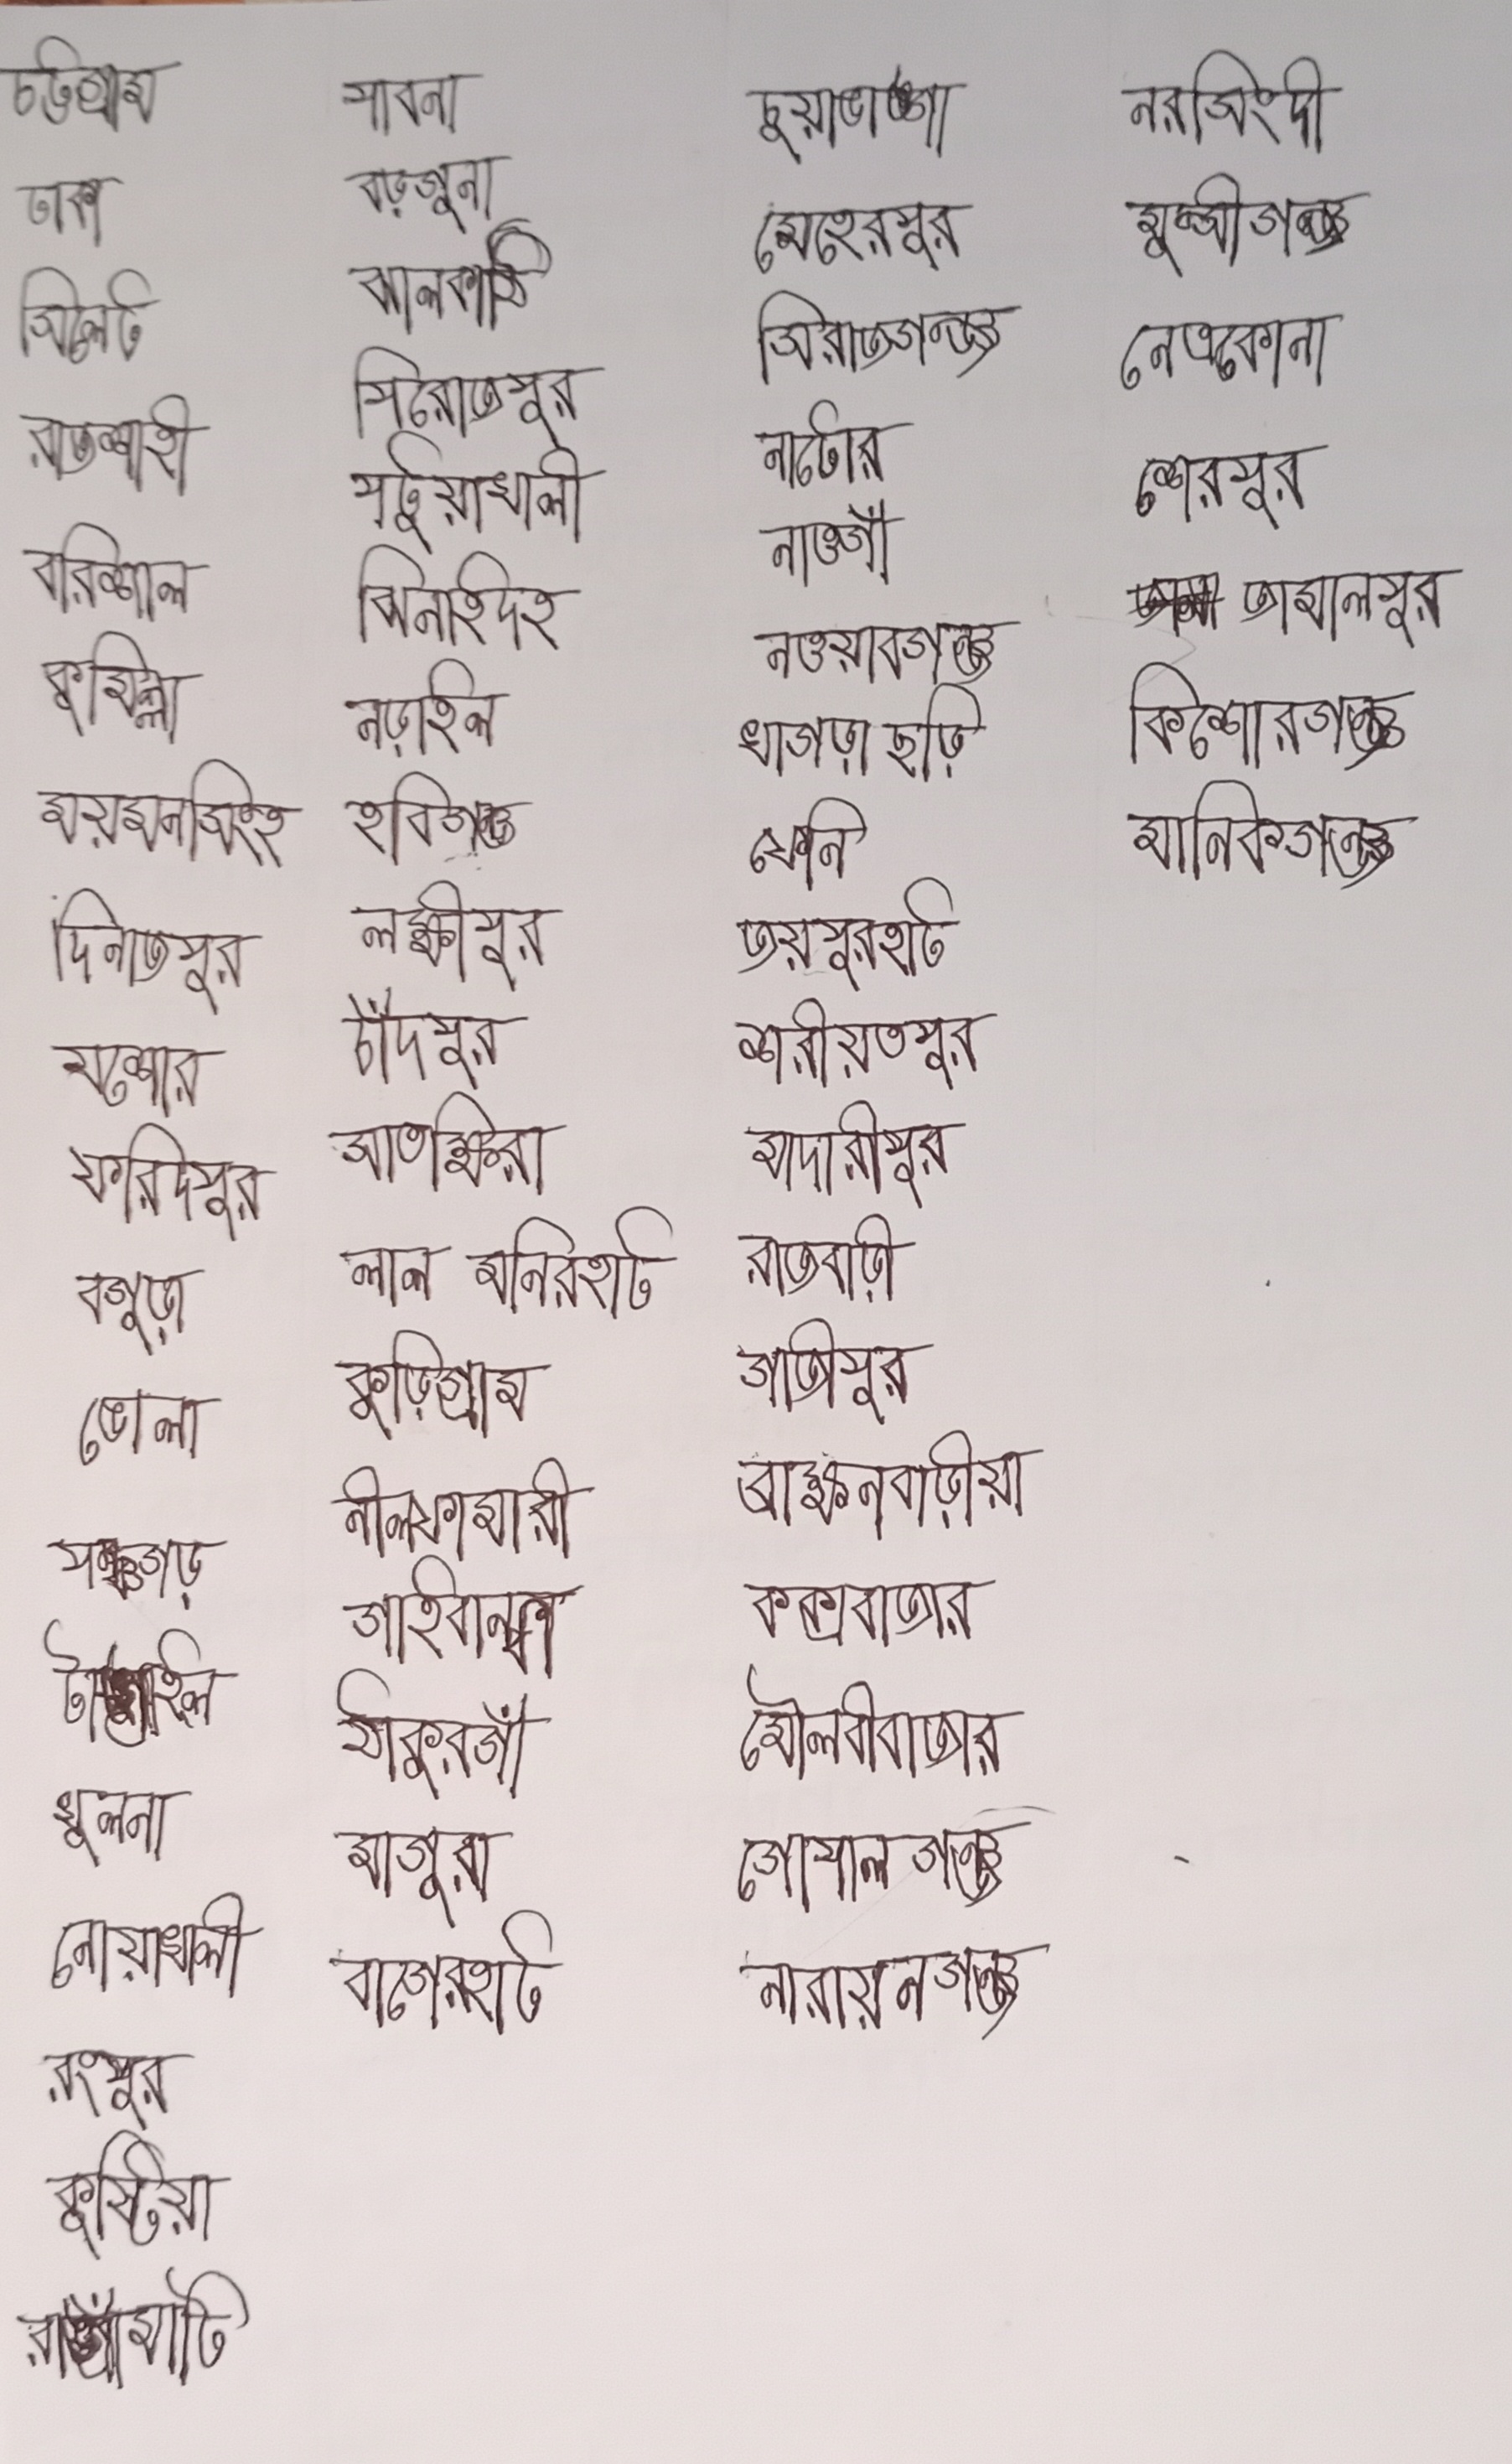 চট্টগ্রাম
ঢাকা
সিলেট
রাজশাহী
বরিশাল
কুমিল্লা
ময়মনসিংহ
দিনাজপুর
যশোর
ফরিদপুর
বগুড়া
ভোলা
পঞ্চগড়
টাঙ্গাইল
খুলনা
নোয়াখালী
রংপুর
কুষ্টিয়া
রাঙ্গামাটি
পাবনা
বড়গুনা
ঝালকাঠি
পিরোজপুর
পটুয়াখালী
ঝিনাইদহ
নড়াইল
হবিগঞ্জ
লক্ষীপুর
চাঁদপুর
সাতক্ষিরা
লাল মনিরহাট
কুড়িগ্রাম
নীলফামারী
গাইবান্ধা
ঠাকুরগাঁ
মাগুরা
বাগেরহাট
চুয়াডাঙ্গা
মেহেরপুর
সিরাজগন্জ
নাটোর
নাওগাঁ
নওয়াবগঞ্জ
খাগড়া ছড়ি
ফেনি
জয়পুরহাট
শরীয়তপুর
মাদারীপুর
রাজবাড়ী
গাজীপুর
ব্রাহ্মনবাড়ীয়া
কক্সবাজার
মৌলবীবাজার
গোপাল গঞ্জ
নারায়নগঞ্জ
নরসিংদী
মুন্সীগঞ্জ
নেত্রকোনা
শেরপুর
জামালপুর
কিশোরগঞ্জ
মানিকগঞ্জ